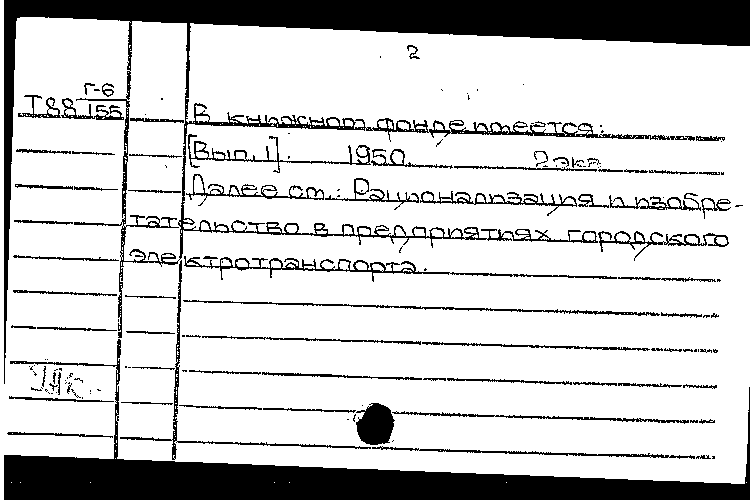 2
Г-6
Т88 155
В книжном фонде имеется:
[Вып. 1]. 1950. 2 экз
Далее см.: Рационализация и изобре-
тательство в предприятиях городского
электротранспорта.